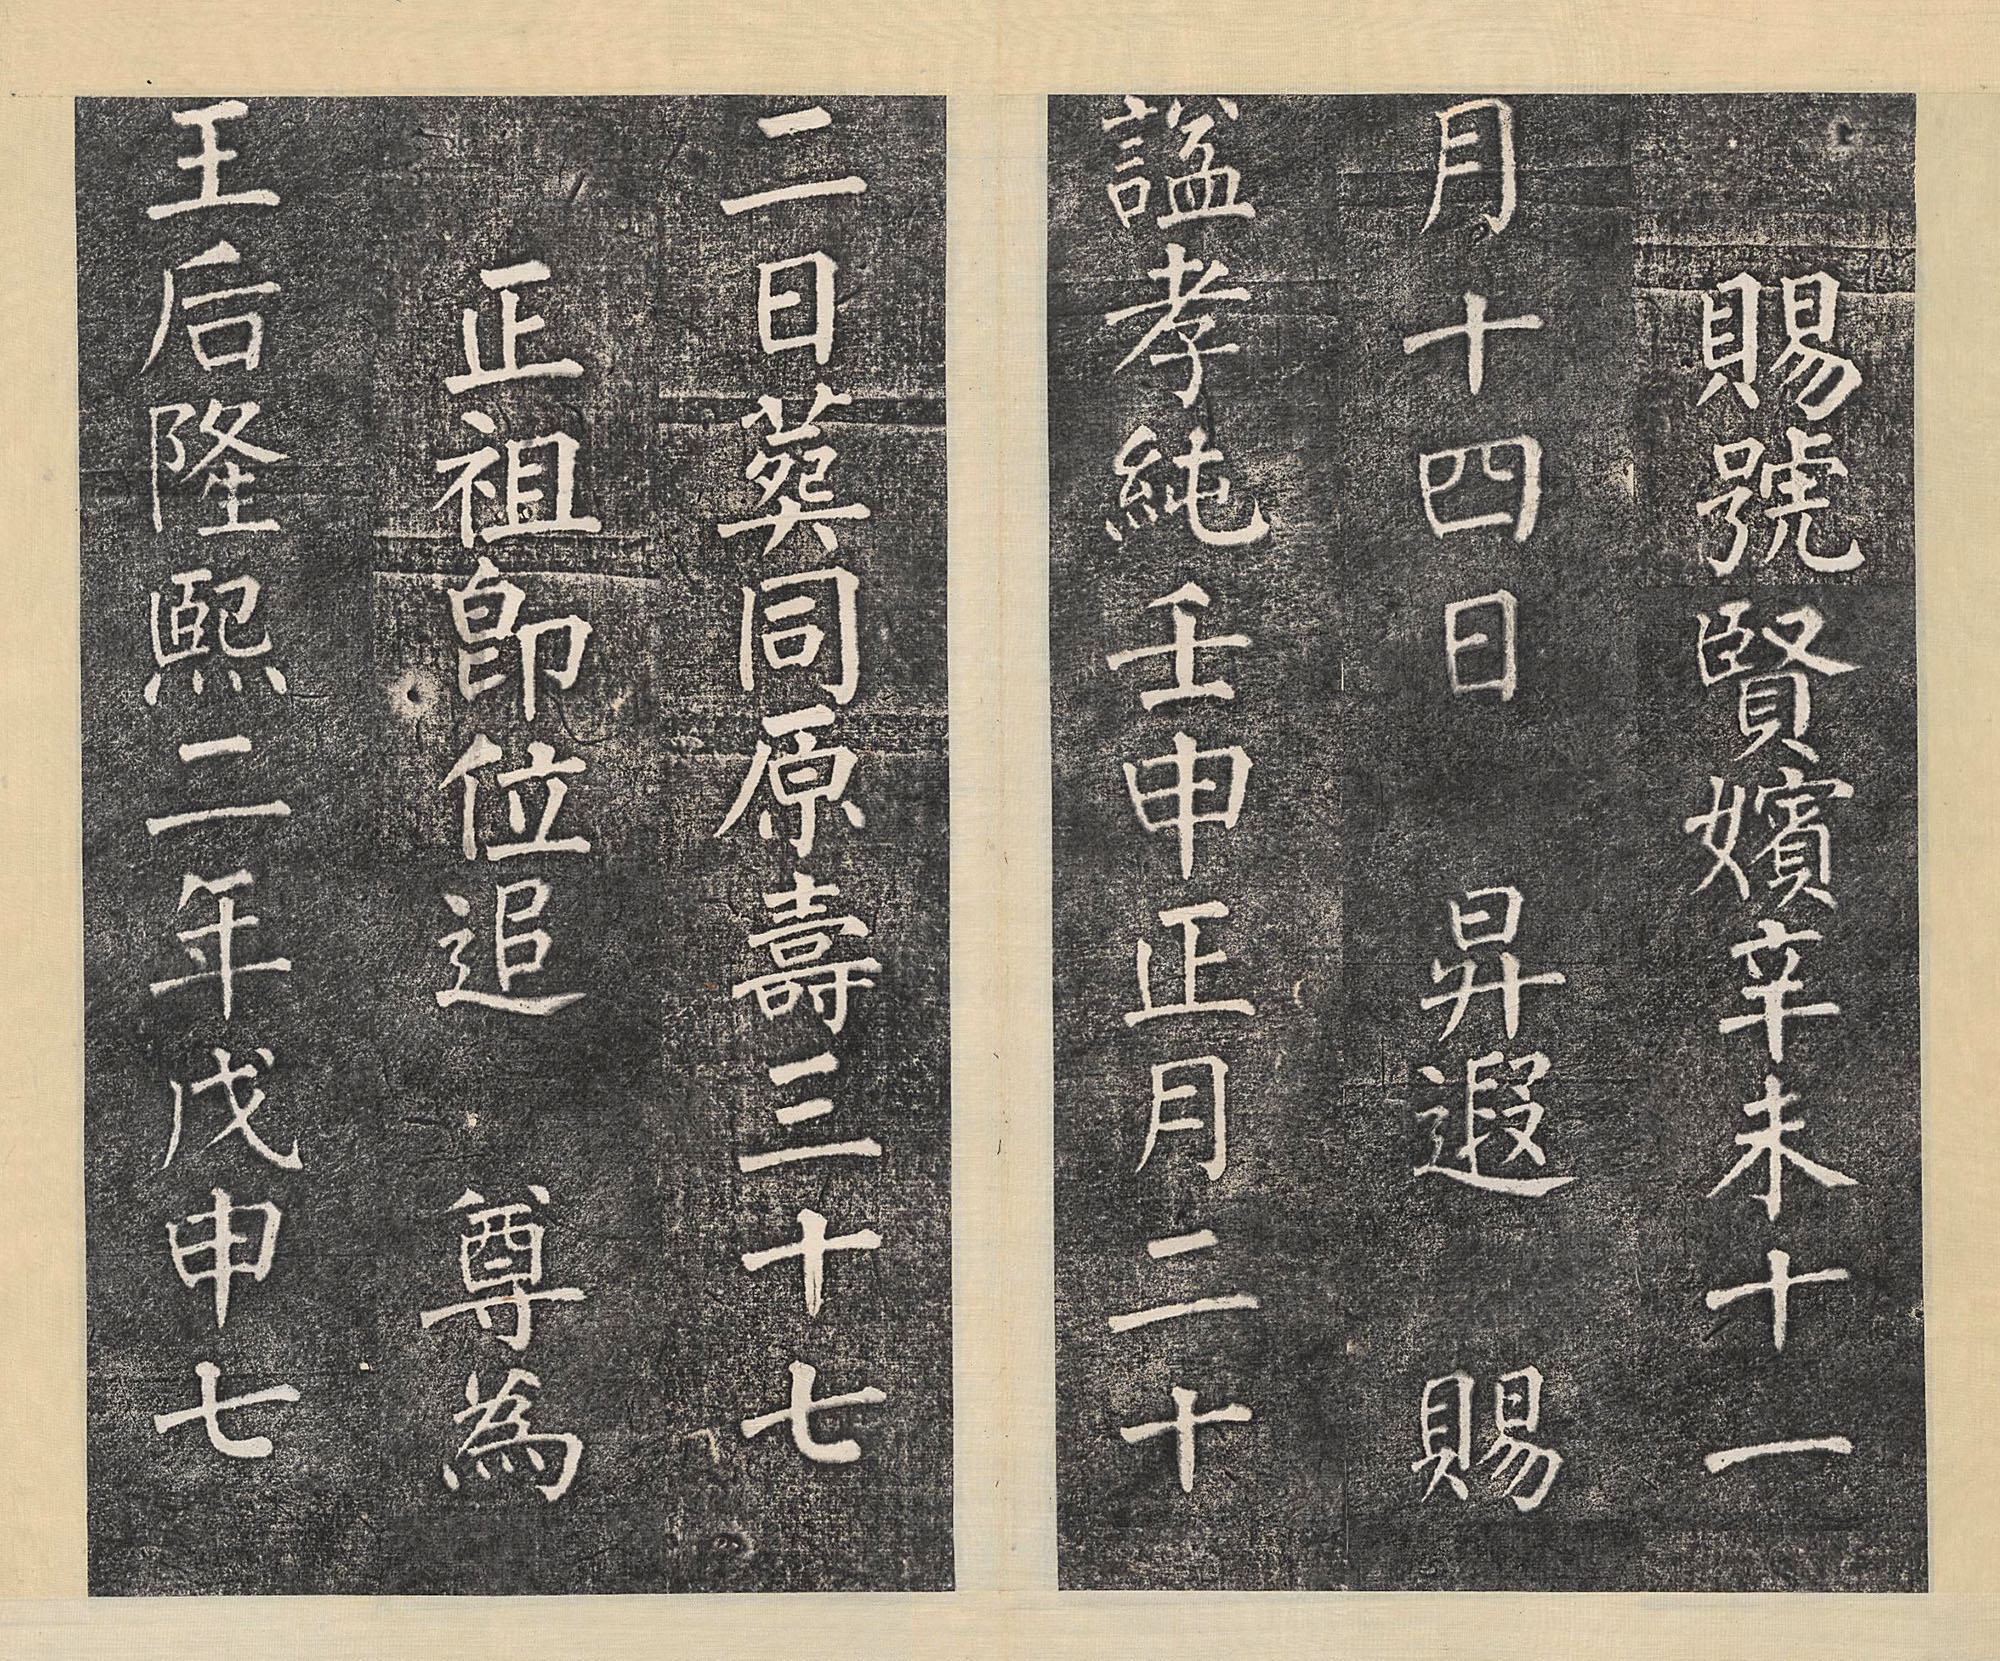 賜號賢嬪辛未十一
月十四日 昇遐 賜
謚孝純壬申正月二十
二日葬同原壽三十七
正祖卽位追 尊為
王后隆熙二年戊申七